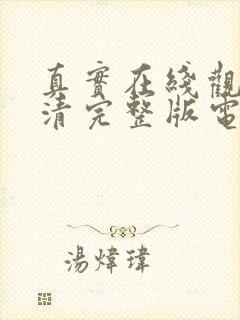 真實在綫觀
清完整版電
湯煒瑋